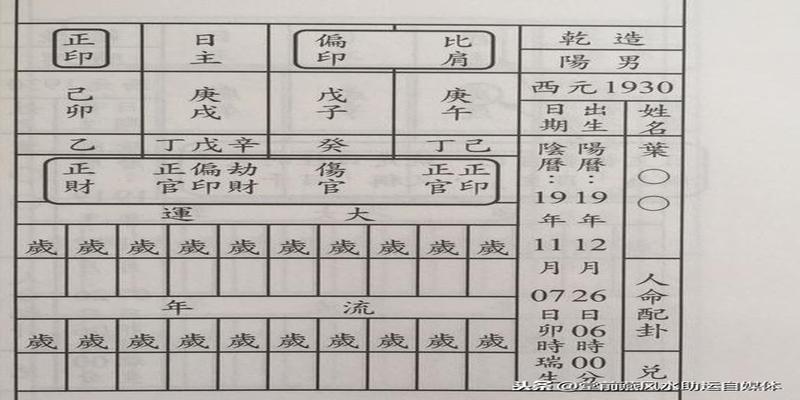 乾造
陽男
西元1930
姓名
葉○○
人命配卦
兌
出生日期
陽曆：19年12月26日06時00分
陰曆：19年11月07日卯時瑞生
比肩
偏印
日主
正印
庚午
戊子
庚戌
己卯
丁己
癸
丁戊辛
乙
正印
正官
傷官
劫財
偏印
正官
正財
大運
歲歲歲歲歲歲歲歲歲歲
流年
歲歲歲歲歲歲歲歲歲歲
头条
风水助运自媒体